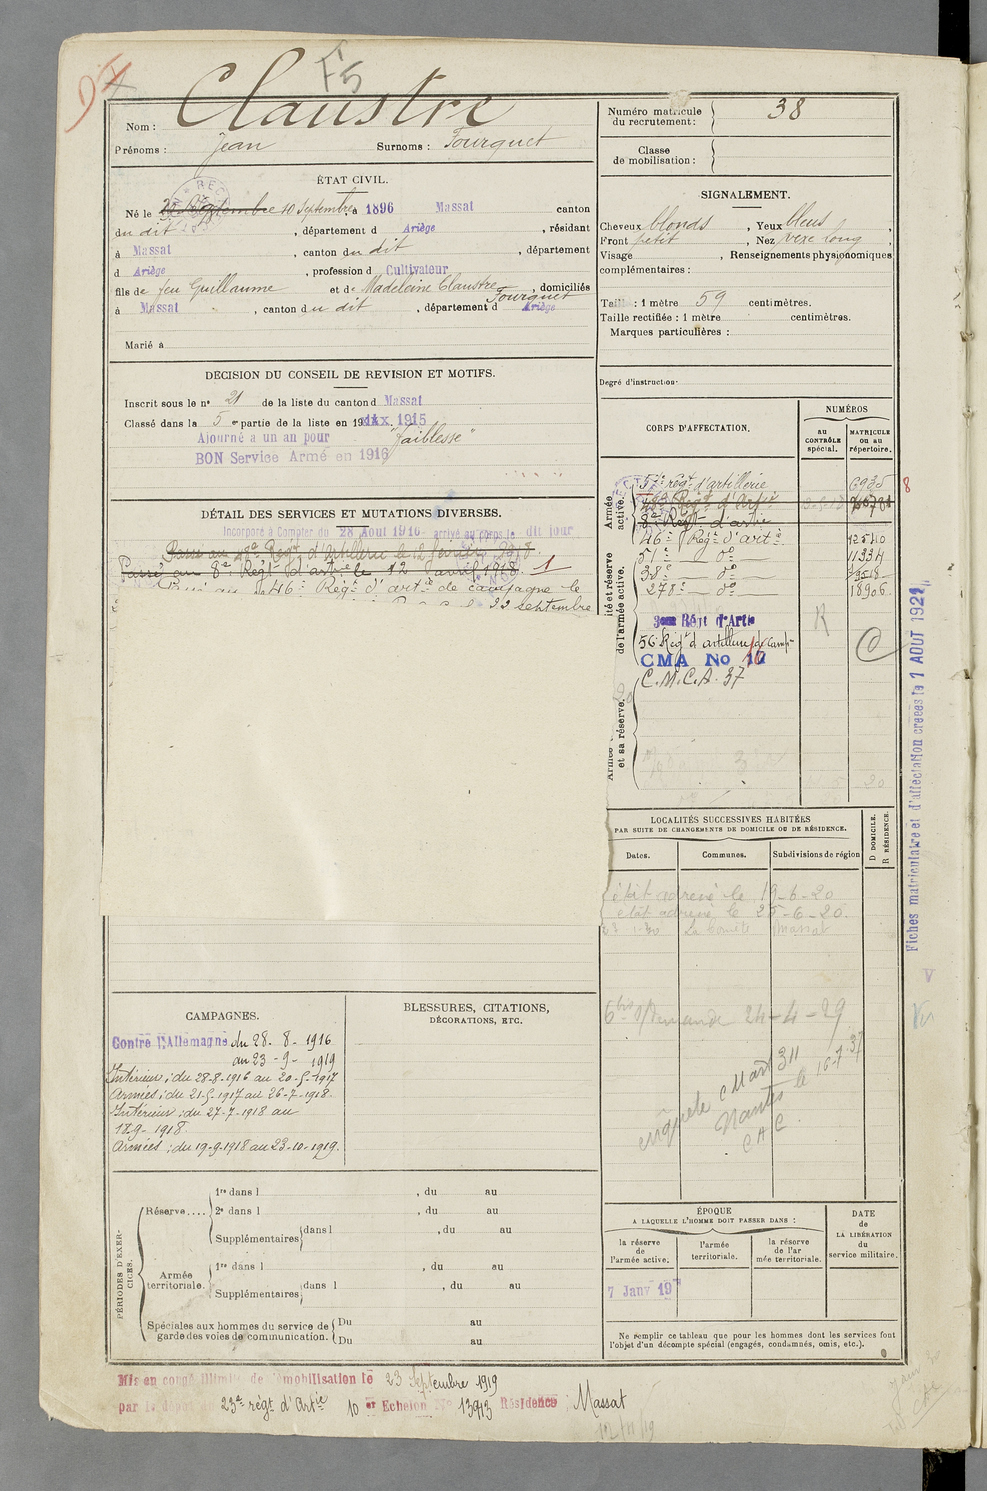 F5
Nom : Claustre
Prénoms : Jean Surnoms : Fourquet
Numéro matricule du recrutement : 38
Classe de mobilisation :
ÉTAT CIVIL.
Né le 10 Septembre, à 1896 Massat canton
du dit, département d Ariège, résidant
à Massat, canton du dit, département
d Ariège, profession d Cultivateur
fils de feu Guillaume et de Madeleine Claustre, domiciliés
Fourquet
à Massat, canton du dit, département d Ariège
Marié à
SIGNALEMENT.
Cheveux blonds, Yeux bleus,
Front petit, Nez long,
Visage , Renseignements physionomiques
complémentaires :
Taille : 1 mètre 59 centimètres.
Taille rectifiée : 1 mètre centimètres.
Marques particulières :
Degré d'instruction.
DECISION DU CONSEIL DE REVISION ET MOTIFS.
Inscrit sous le nº 21 de la liste du canton d Massat
Classé dans la 5 e partie de la liste en 1915
Ajourné a un an pour "faiblesse"
BON Service Armé en 1916
DÉTAIL DES SERVICES ET MUTATIONS DIVERSES.
Incorporé à Compter du 28 Aout 1916 arrivé au corps le dit jour
Passé au 8e Régt d'artie le 12 avril 1918. 1
46e Régt d'artie de campagne le
22 septembre
CORPS D'AFFECTATION.
NUMÉROS
au CONTRÔLE spécial.
MATRICULE ou au répertoire.
57e régt d'artillerie 6935
8
8e Régt d'artie
46e Régt d'arte. 12540
51e dº 11334
30e dº
278e dº 18906.
30me Régt d'Artie
R
56 Régt d'artillerie de camp
CMA No
C.M.C.A. 37
LOCALITÉS SUCCESSIVES HABITÉES
PAR SUITE DE CHANGEMENTS DE DOMICILE OU DE RÉSIDENCE.
Dates.
Communes.
Subdivisions de région
D DOMICILE.
R RÉSIDENCE.
était adressé le 19-6-20
était adressé le 25-6-20.
Massat
24-4-29
enquête
Nantes le 16-7-37
CAC
Fiches matriculaire et d'affectation creées le 1 AOUT 1921
CAMPAGNES.
Contre l'Allemagne du 28. 8- 1916
au 23 -9- 1919
Intérieur : du 28-8-1916 au 20-5-1917
Armées : du 21-5-1917 au 26-7-1918.
Intérieur : du 27-7-1918 au
18-9-1918.
Armées : du 19-9-1918 au 23-10-1919.
BLESSURES, CITATIONS,
DÉCORATIONS, ETC.
PÉRIODES D'EXERCICES.
Réserve....
1re dans l , du au
2e dans l , du au
Supplémentaires dans l , du au
Armée territoriale.
1re dans l , du au
Supplémentaires dans l , du au
Spéciales aux hommes du service de garde des voies de communication.
Du au
Du au
ÉPOQUE
A LAQUELLE L'HOMME DOIT PASSER DANS :
la réserve de l'armée active.
l'armée territoriale.
la réserve de l'armée territoriale.
DATE de LA LIBÉRATION du service militaire.
7 Janv 19
Ne remplir ce tableau que pour les hommes dont les services font
l'objet d'un décompte spécial (engagés, condamnés, omis, etc.).
Mis en congé illimité de démobilisation le 23 Septembre 1919
par le dépôt 23e régt d'Artie 10 er Echelon No 13943 Résidence : Massat
12/11/19